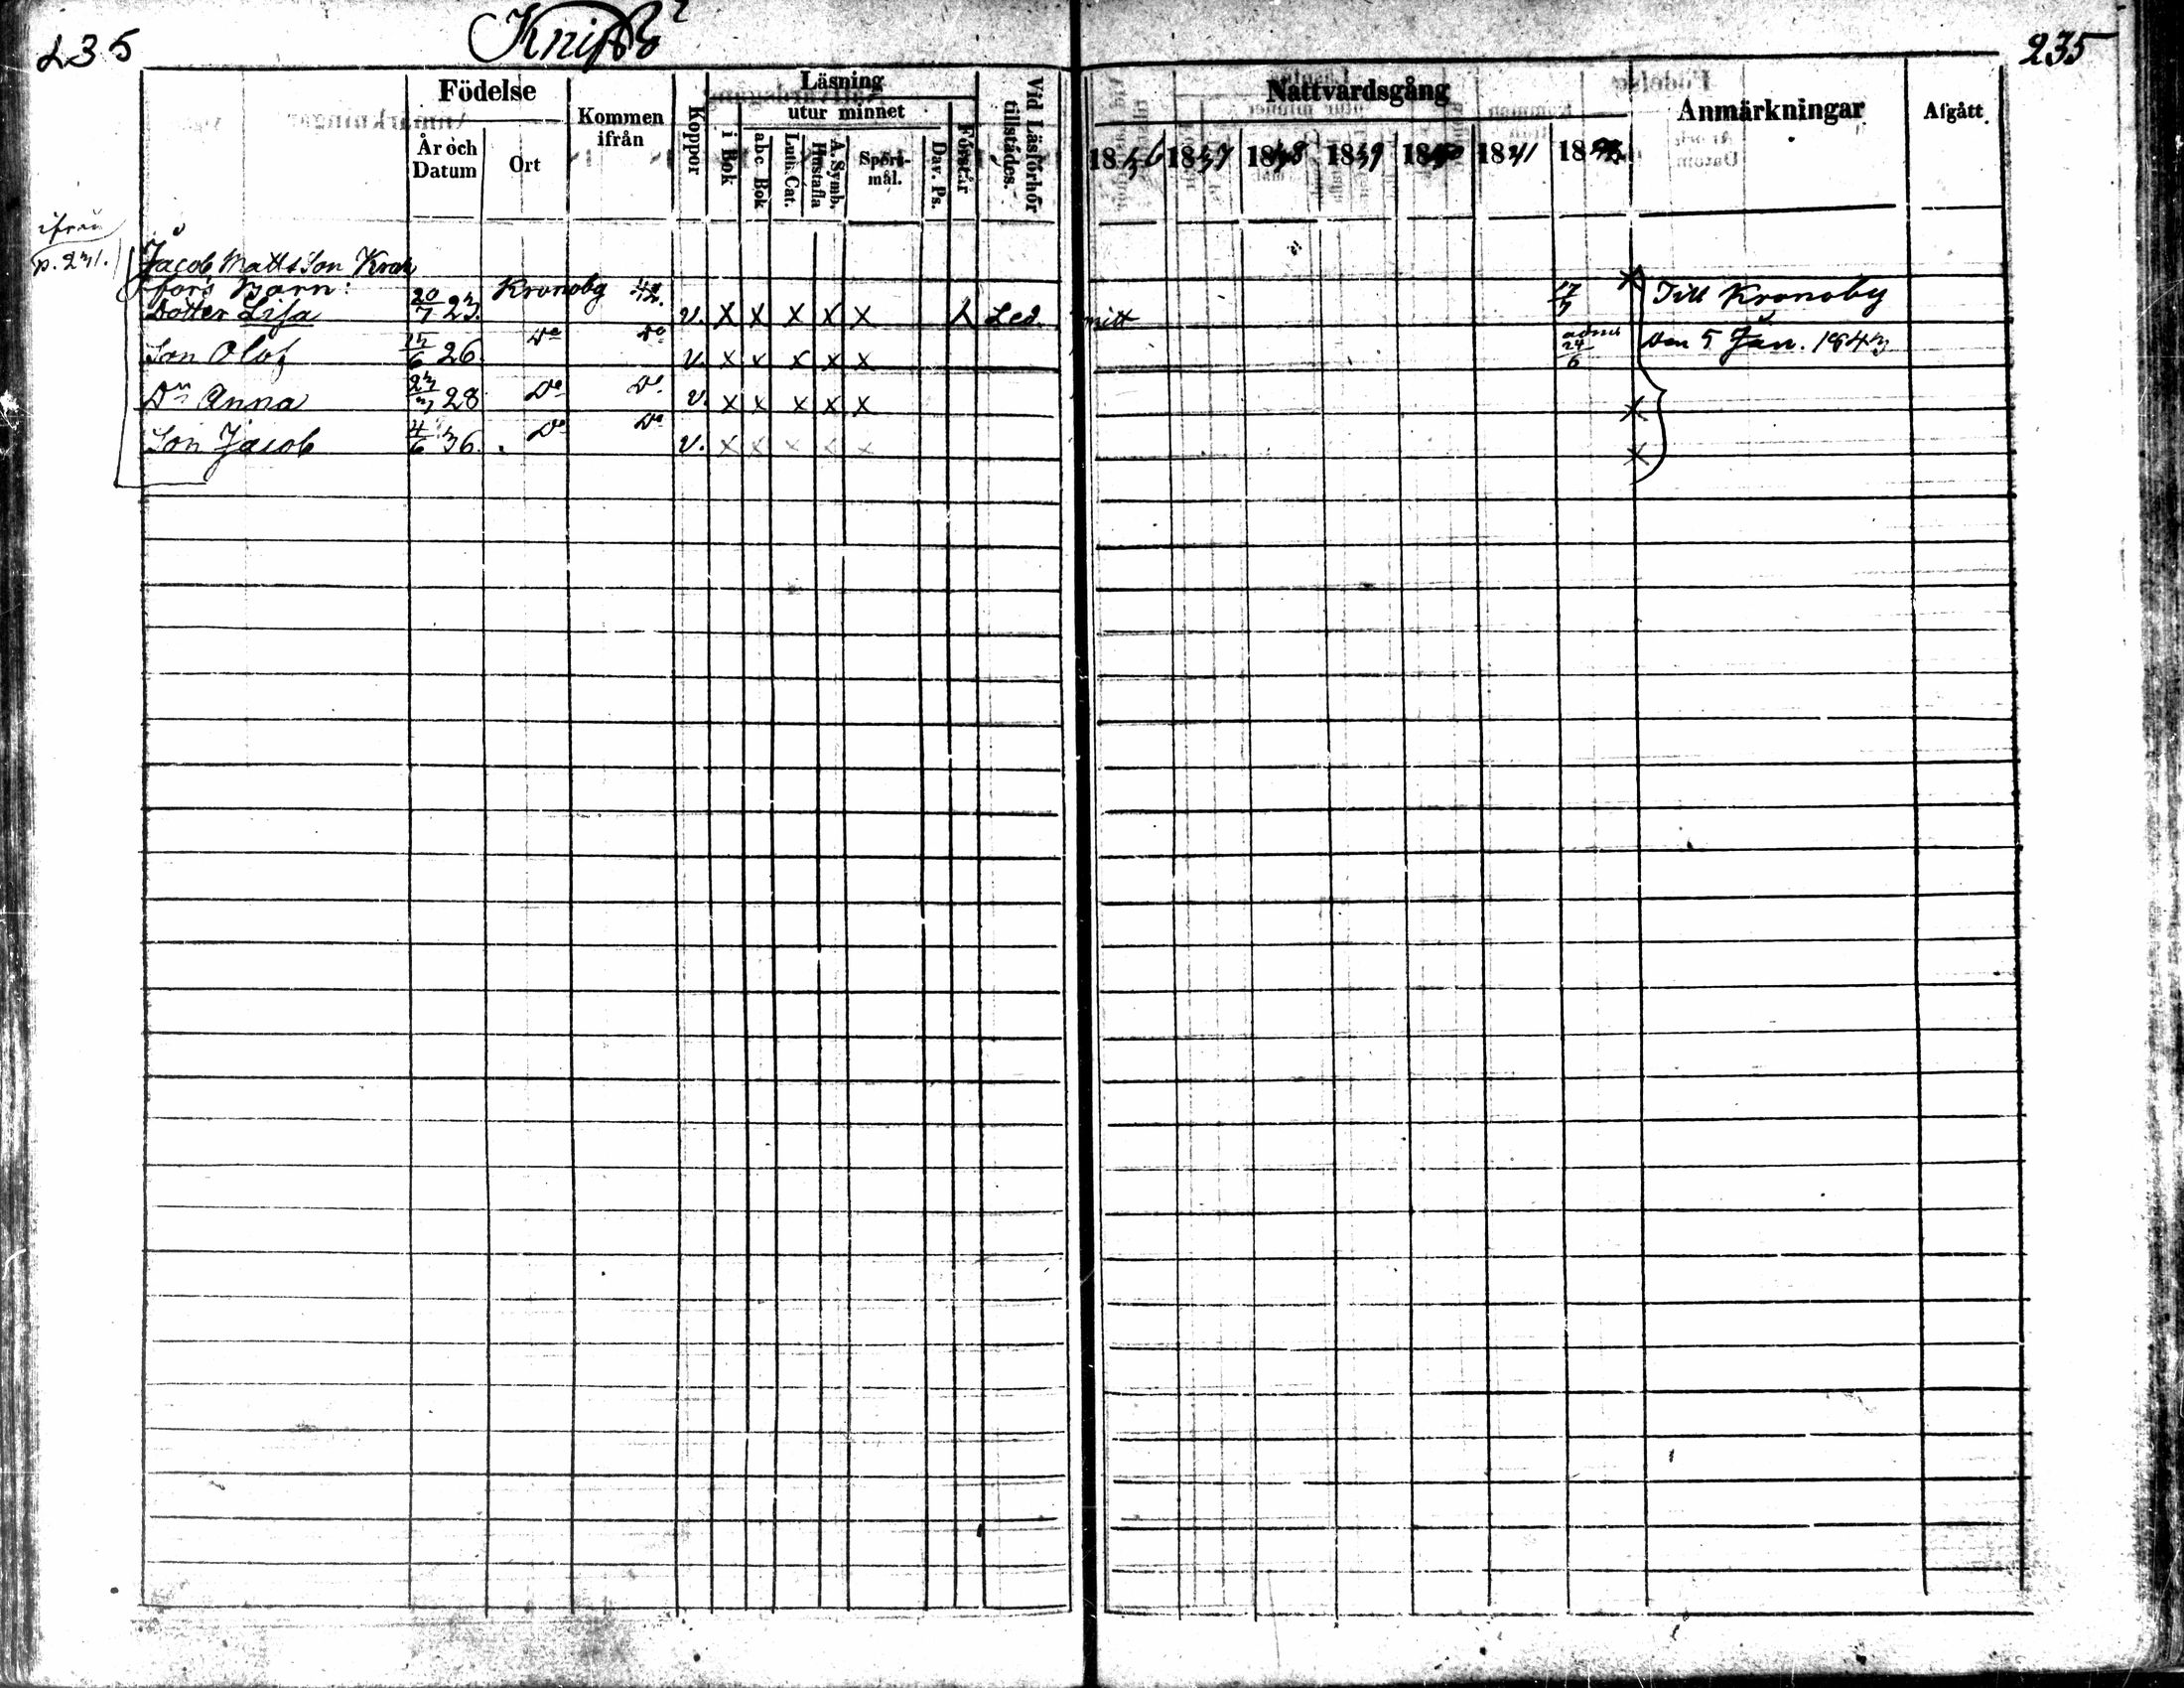 235
235
Födelse
År och Datum
Ort
Kommen ifrån
Koppor
Läsning
i Bok
utur minnet
abc Bok
Luth. Cat.
Hustafla
A. Symb.
Spörs-mål.
Dav. Ps.
Förstår
Vid Läsförhör tillstädes.
Nattvardsgång
1836 1837 1838 1839 1840 1841 1842
Anmärkningar
Afgått
ifrån
p. 231.
Jacob Matts Son
fors barn:
Dotter Lisa 20/7 23. Kronoby 42. v. x x x x x Led. mitt Till Kronoby
Son Olof 15/6 26. Do Do v. x x x x x 24/6 den 5 Jan. 1843
Dr Anna 28 Do Do v. x x x x x x
Son Jacob 4/6 36. Do Do v. x x x x x x